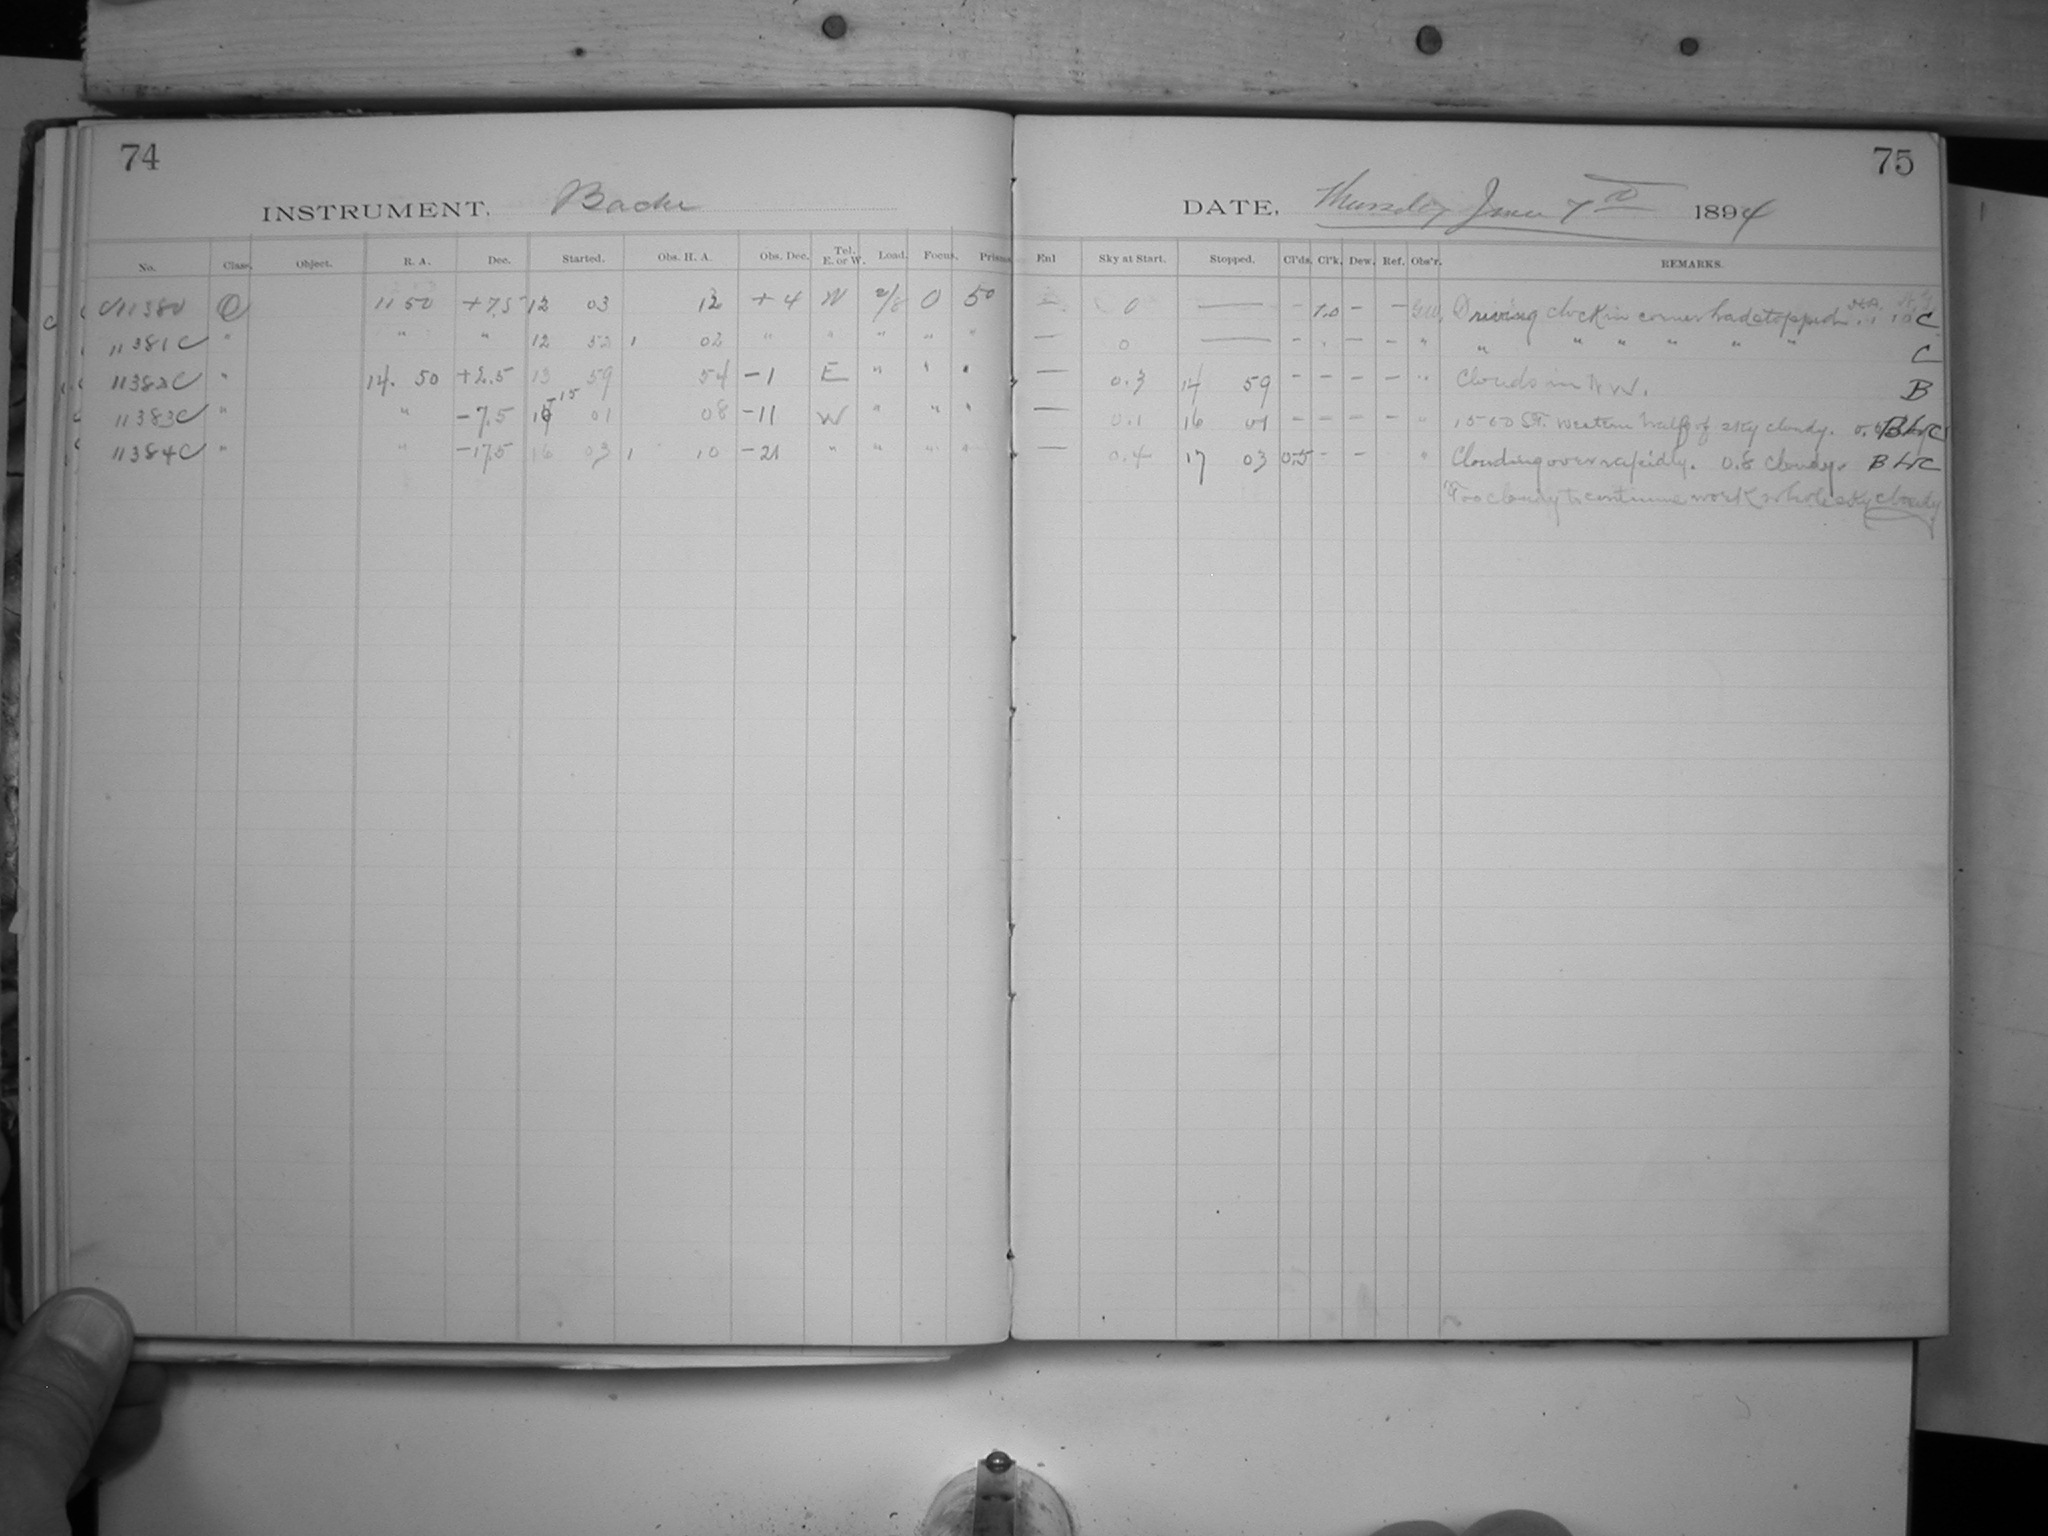 74
INSTRUMENT. Bache
No. Class. Object. R. A. Dec. Started. Obs. H. A. Obs. Dec. Tel. E. or W. Load. Focus. Prisms
11380 1150 +7.5 12 03 12 +4 W 2/8 0 50
11381C " " " 12 52 1 02 " " " " "
11382C " 14. 50 +2.5 13 59 54 -1 E " " "
11383C " " -7.5 15 01 08 -11 W " " "
11384C " " -17.5 16 03 1 10 -21 " " " "
75
DATE. Thursday June 7th 1894
Enl Sky at Start. Stopped. Cl'ds. Cl'k. Dew. Ref. Obs'r. REMARKS.
— 0 — - - - Driving clock in corner had stopped C
— 0 — - - - - " " " " " " " C
— 0.3 14 59 - - - - " Clouds in N W. B
— 0.1 16 01 - - - - " St. western half of sky cloudy.
— 0.4 17 03 0.5 - - " Clouding over rapidly. 0.8 cloudy.
Too cloudy to continue work whole sky cloudy